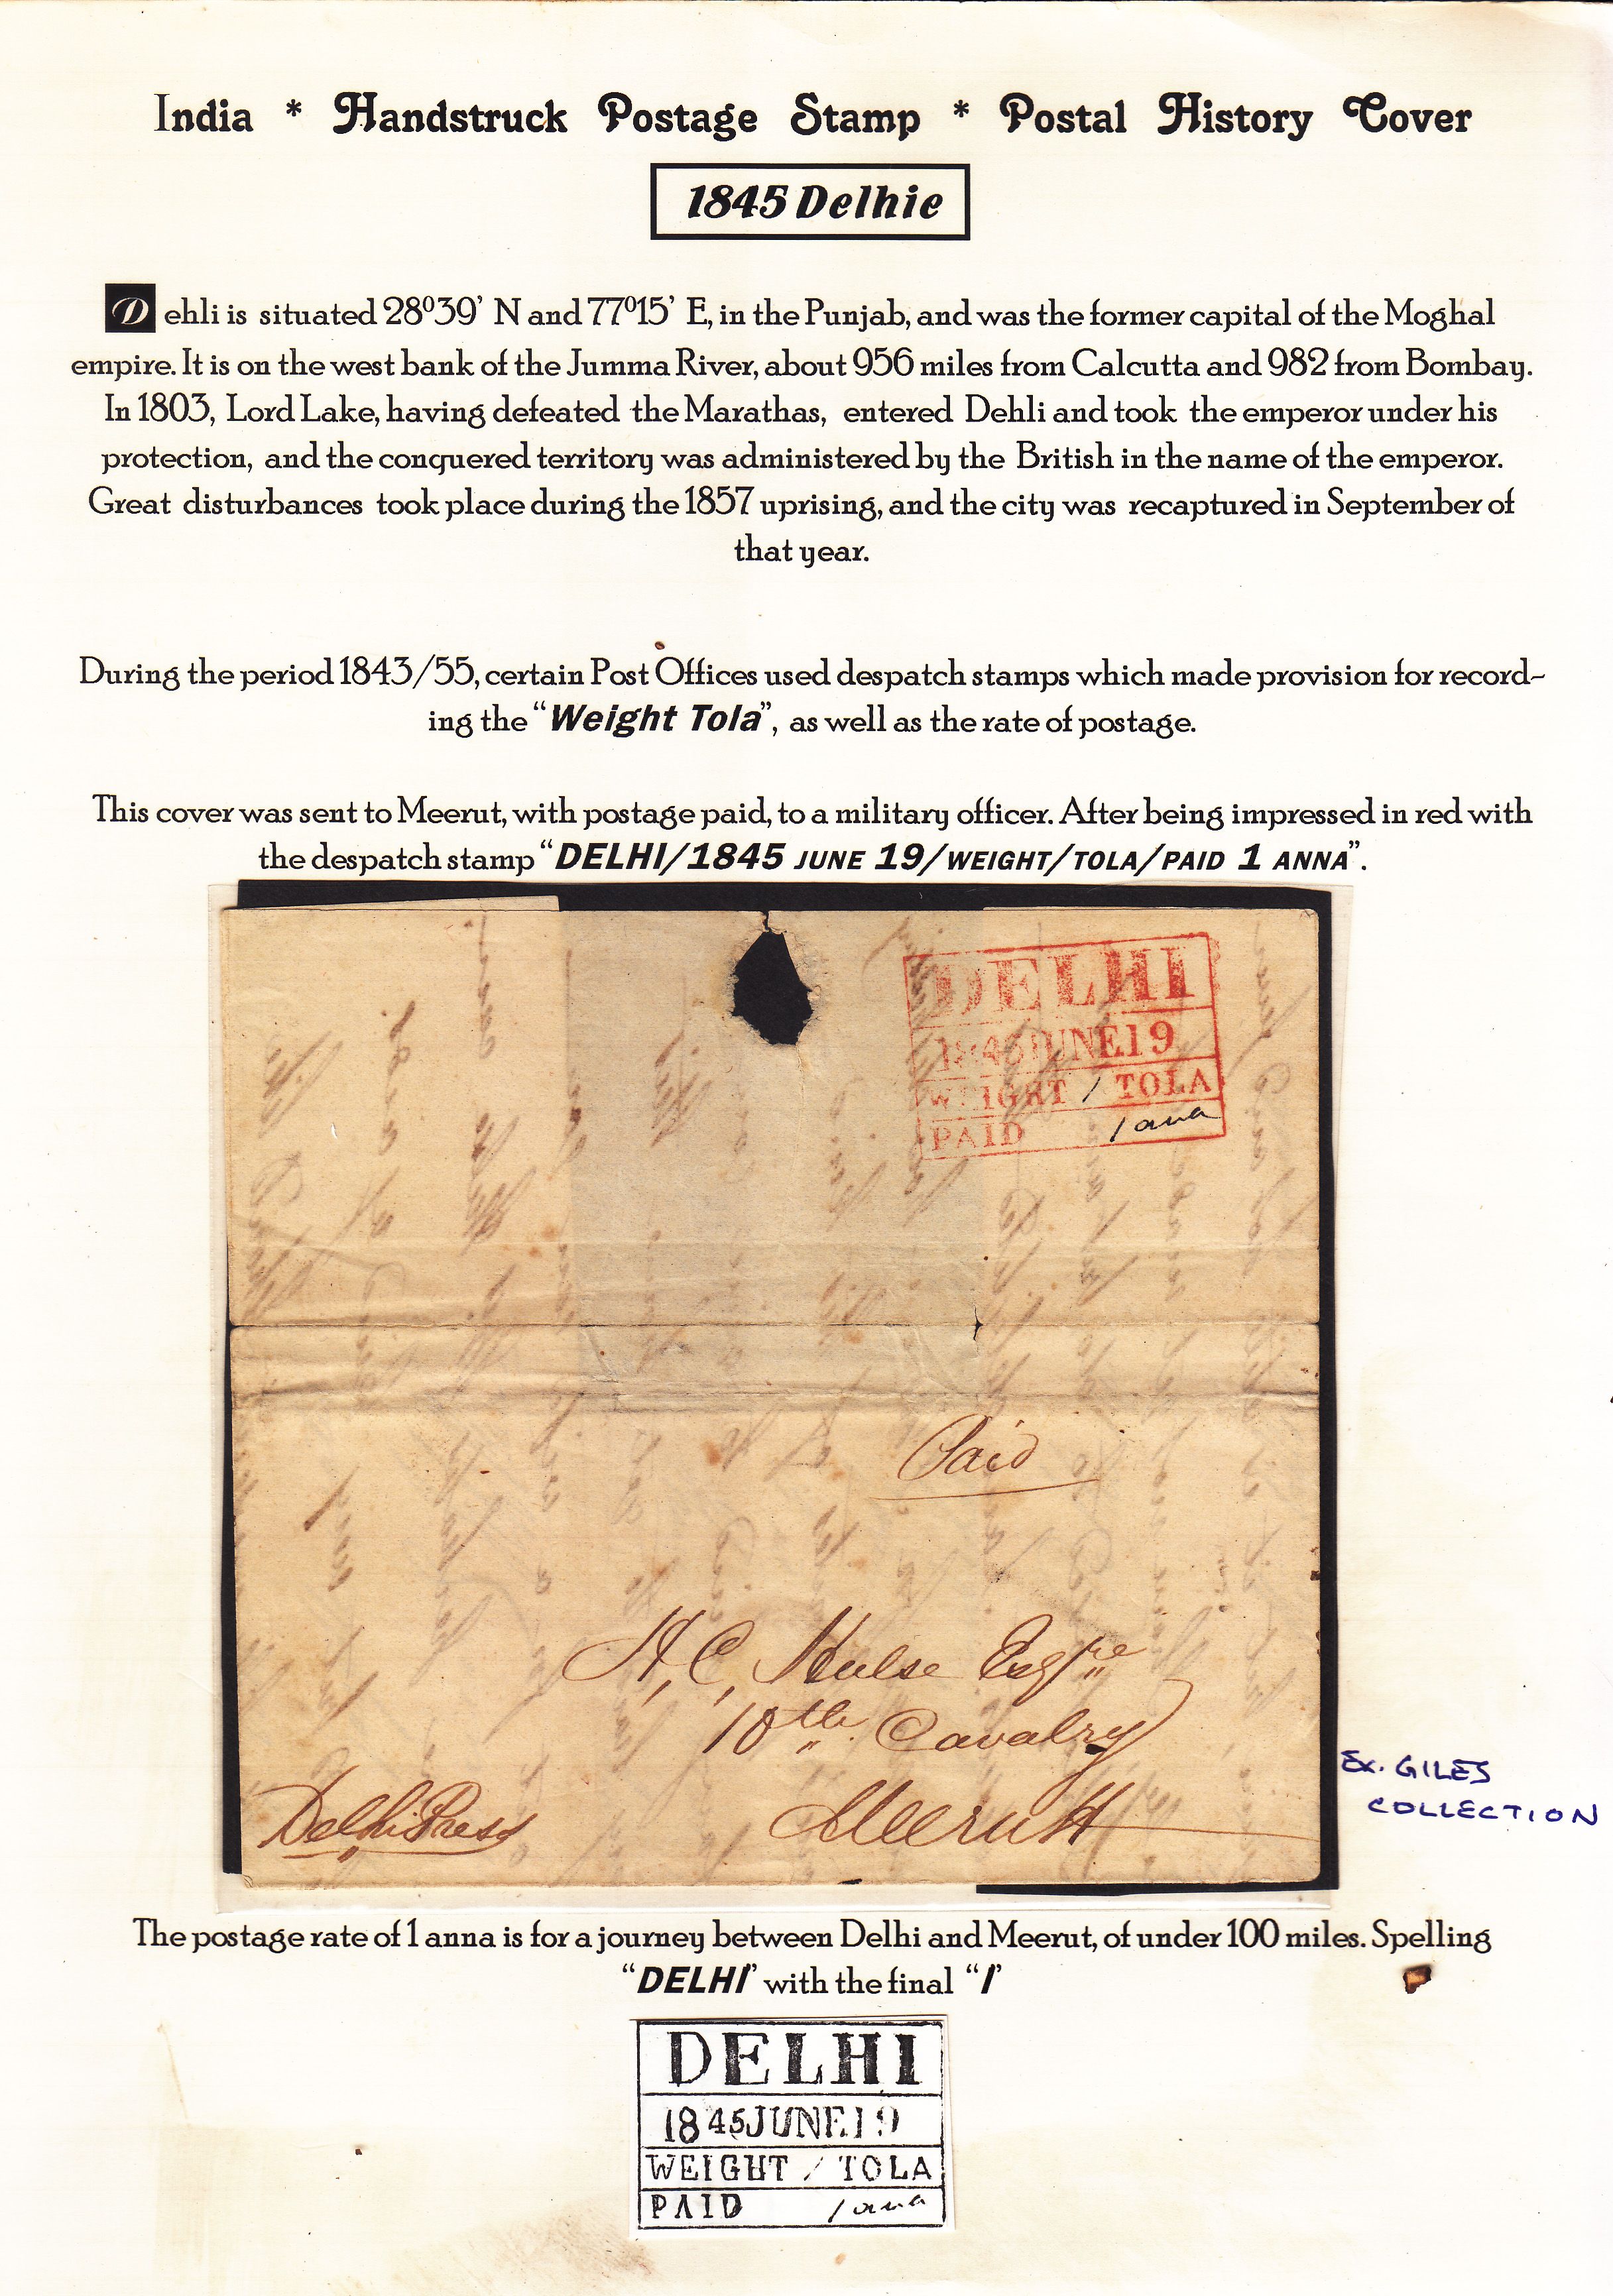 India * Handstruck Postage Stamp * Postal History Cover
1845 Delhie
Dehli is situated 28⁰39’ N and 77⁰15’ E, in the Punjab, and was the former capital of the Moghal
empire. It is on the west bank of the Jumma River, about 956 miles from Calcutta and 982 from Bombay.
In 1803, Lord Lake, having defeated the Marathas, entered Dehli and took the emperor under his
protection, and the conquered territory was administered by the British in the name of the emperor.
Great disturbances took place during the 1857 uprising, and the city was recaptured in September of
that year.
During the period 1843/55, certain Post Offices used despatch stamps which made provision for record-
ing the “Weight Tola”, as well as the rate of postage.
This cover was sent to Meerut, with postage paid, to a military officer. After being impressed in red with
the despatch stamp “DELHI/1845 JUNE 19/WEIGHT/TOLA/PAID 1 ANNA”.
DELHI
1845 JUNE 19
WEIGHT / TOLA
PAID 1 ana
Paid
H, C, Hulse Esqre
10th Cavalry
Meerutt
Delhi Press
Ex. GILES
COLLECTION
The postage rate of 1 anna is for a journey between Delhi and Meerut, of under 100 miles. Spelling
“DELHI” with the final “I”
DELHI
1845 JUNE 19
WEIGHT / TOLA
PAID 1 ana